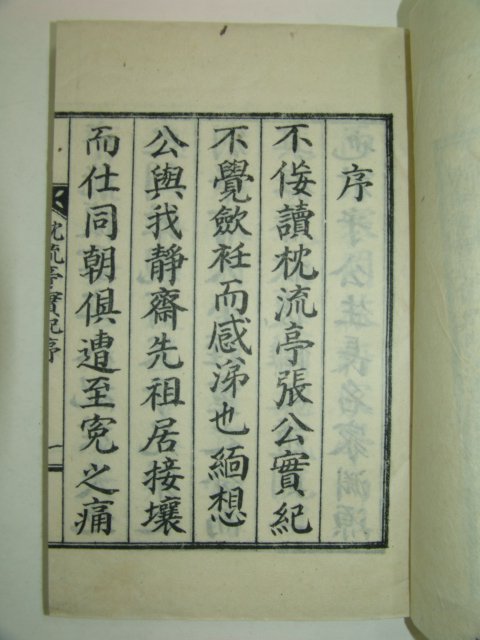 序
不佞讀枕流亭張公實紀
不覺斂衽而感涕也緬想
公與我靜齋先祖居接壤
而仕同朝俱遭至寃之痛
枕流亭實紀序
一